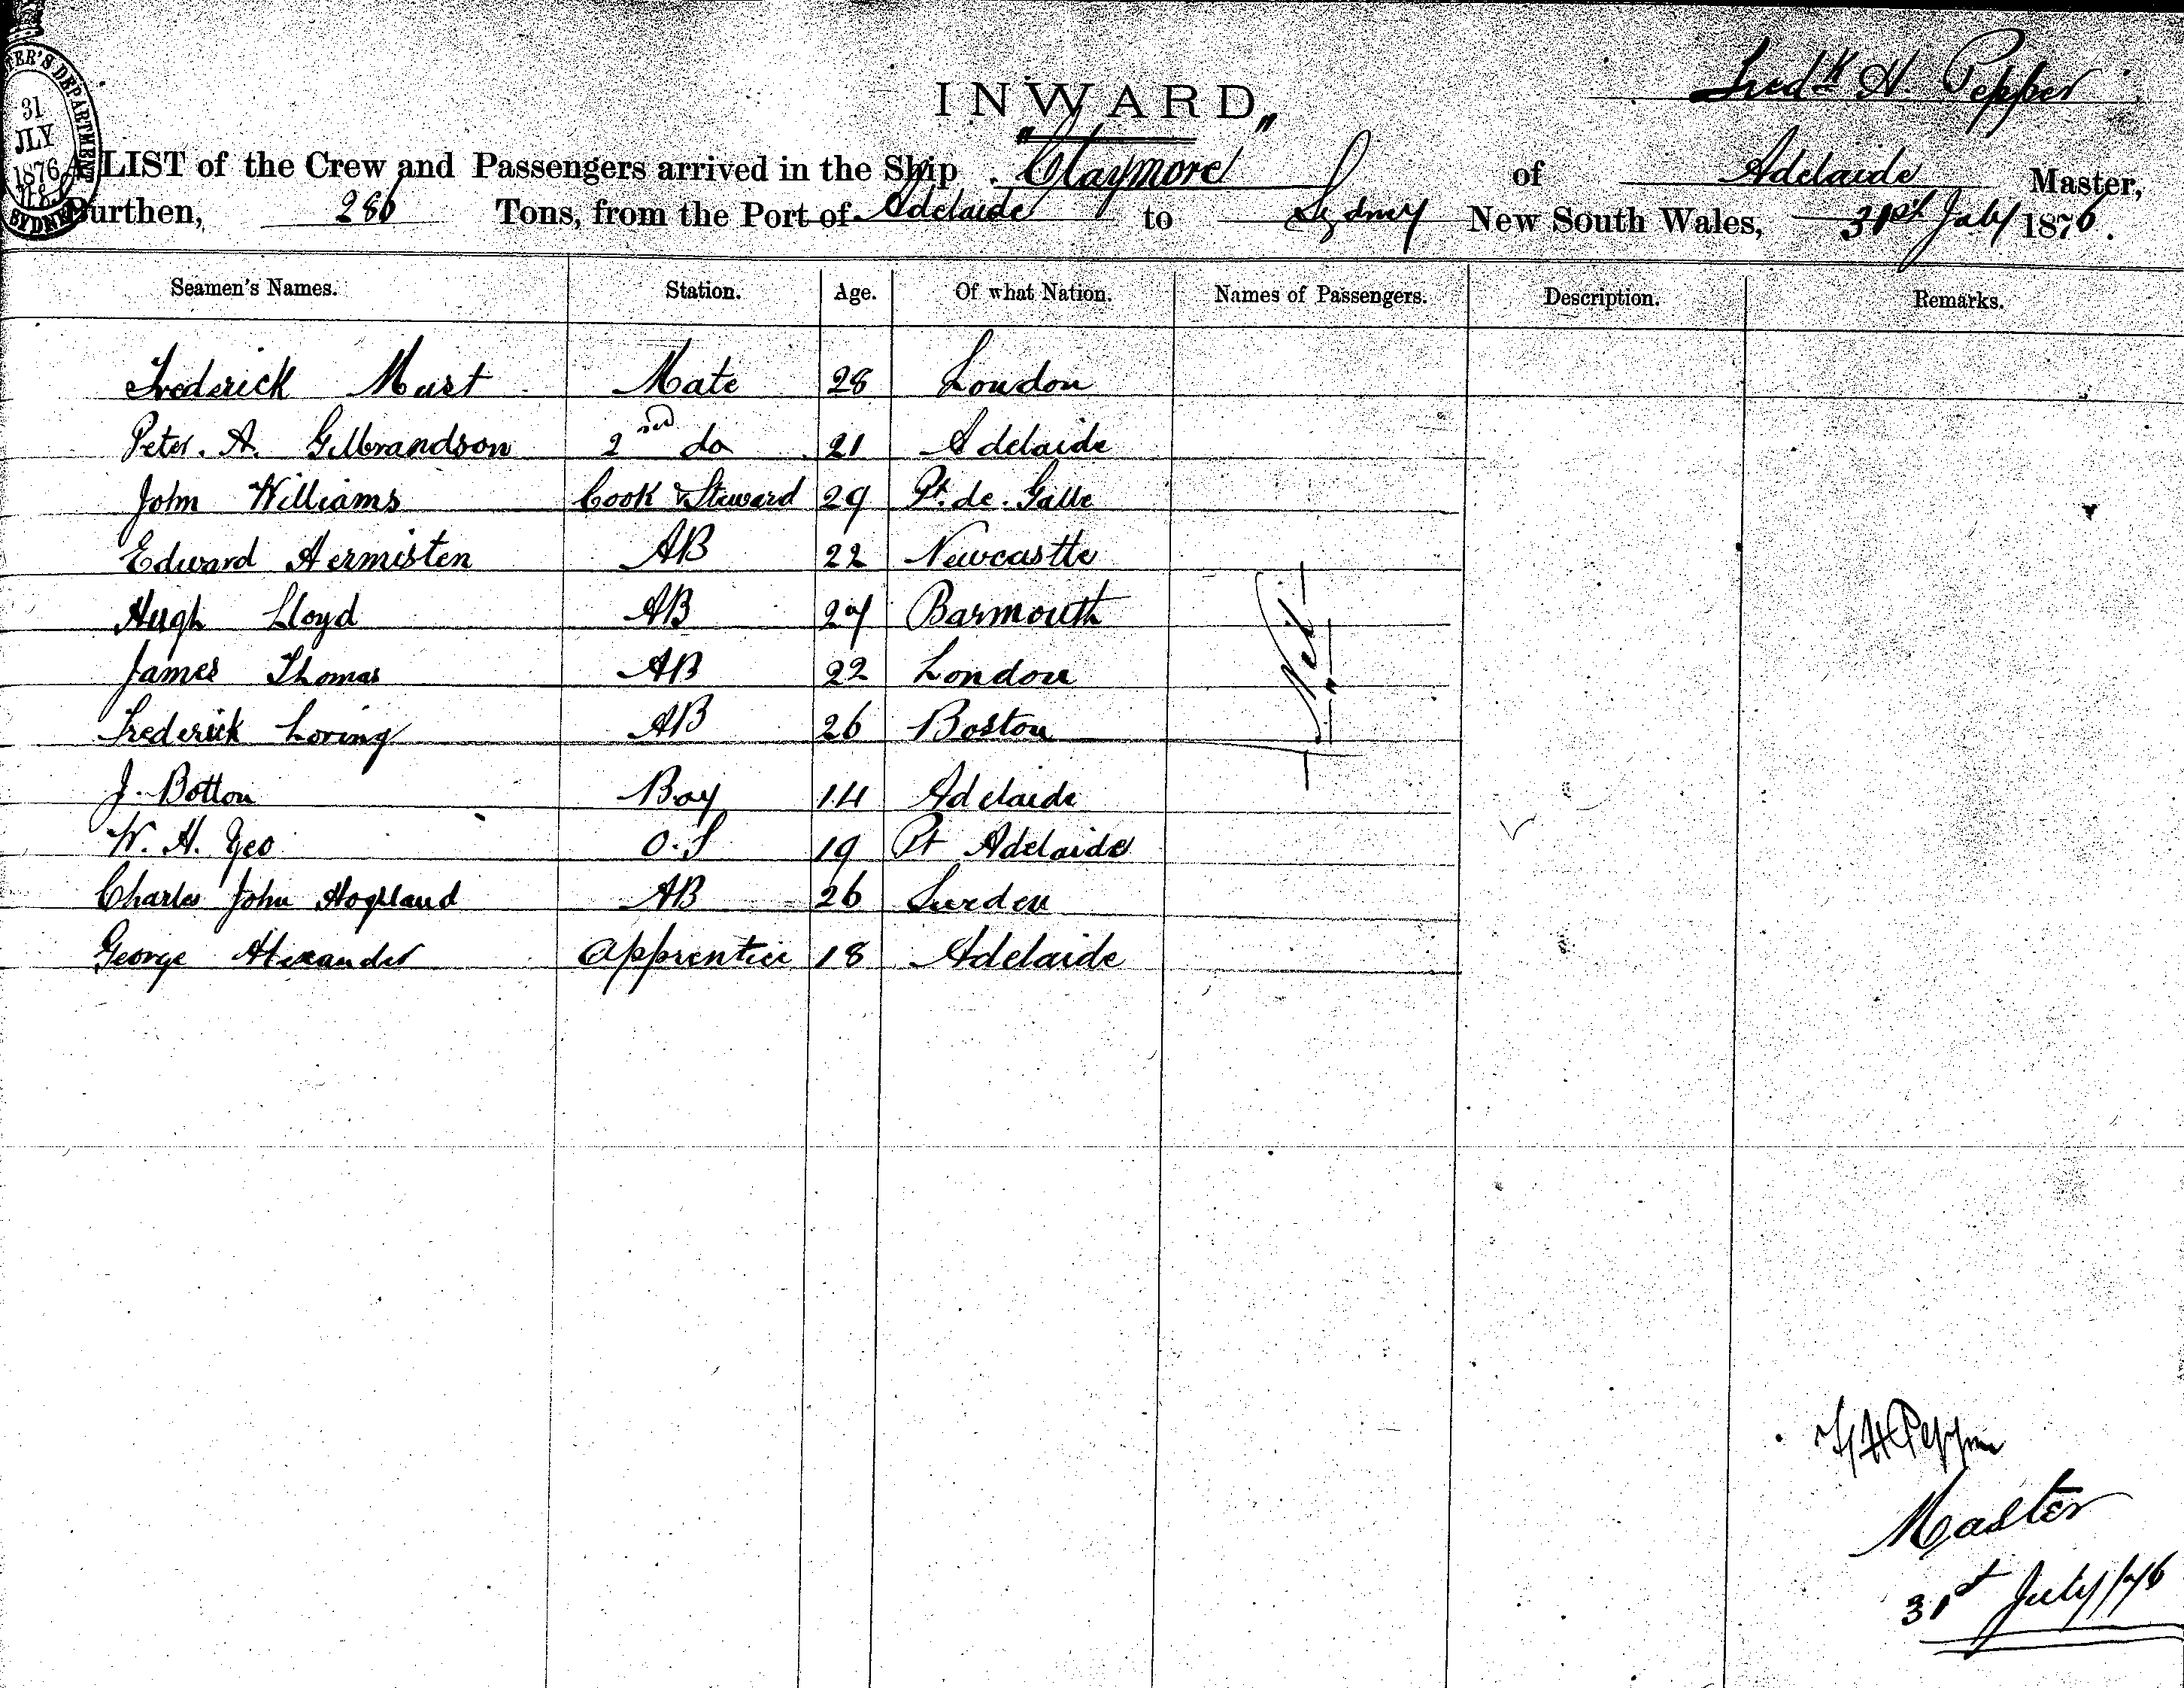 31
JLY
1876
SYDNEY
Fredk H. Pepper
INWARD
LIST of the Crew and Passengers arrived in the Ship "Claymore" of Adelaide Master,
Burthen, 286 Tons, from the Port of Adelaide to Sydney New South Wales, 31st July 1876.
Seamen's Names. Station. Age. Of what Nation. Names of Passengers. Description. Remarks.
Frederick Must Mate 28 London
Peter. A. Gilbrandson 2nd do 21 Adelaide
John Williams Cook & Steward 29 Pt. de. Galle
Edward Hermisten AB 22 Newcastle
Hugh Lloyd AB 24 Barmouth
James Thomas AB 22 London
Frederick Loring AB 26 Boston
J. Botton Boy 14 Adelaide
W. H. Geo O.S 19 Pt Adelaide
Charles John Hogland AB 26 Sweden
George Alexander Apprentice 18 Adelaide
Nil
F H Pepper
Master
31st July/76